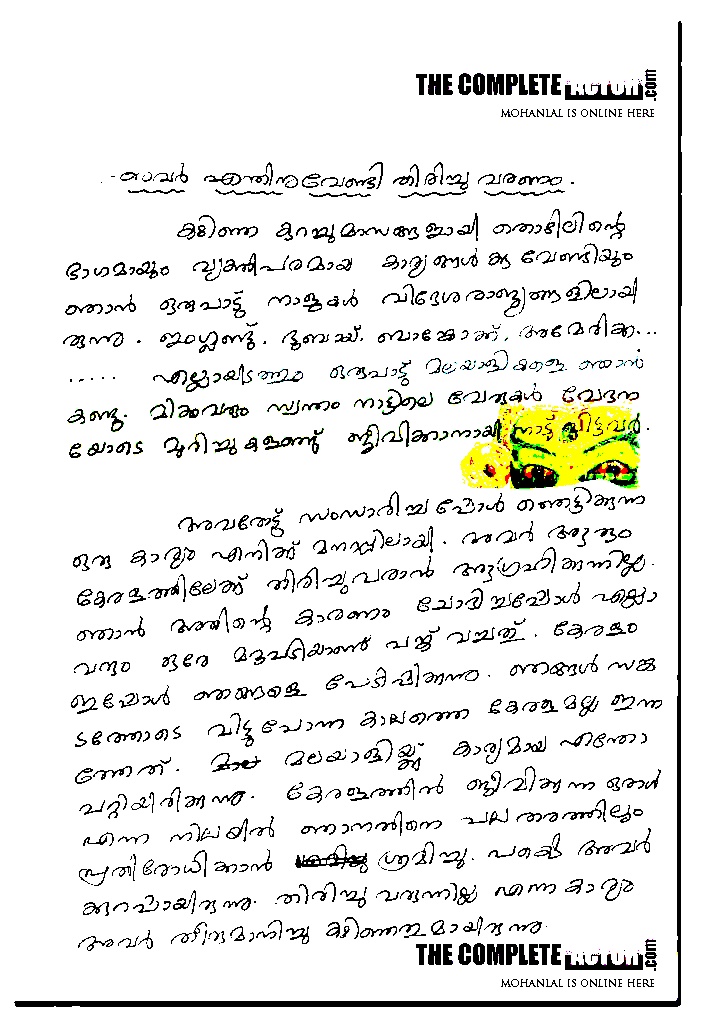 THE COMPLETE ACTOR.com
MOHANLAL IS ONLINE HERE
അവർ എന്തിനുവേണ്ടി തിരിച്ചു വരണം.
കഴിഞ്ഞ കുറച്ചുമാസങ്ങളായി തൊഴിലിന്റെ
ഭാഗമായും വ്യക്തിപരമായ കാര്യങ്ങൾക്കു വേണ്ടിയും
ഞാൻ ഒരുപാട്ടു നാളുകൾ വിദേശരാജ്യങ്ങളിലായി
രുന്നു. ഇംഗ്ലണ്ട്, ദുബായ്, ബാങ്കോക്ക്, അമേരിക്ക...
..... എല്ലായിടത്തും ഒരുപാട്ടു മലയാളികളെ ഞാൻ
കണ്ടു. മിക്കവരും സ്വന്തം നാട്ടിലെ വേരുകൾ വേദന
യോടെ മുറിച്ചുകളഞ്ഞ് ജീവിക്കാനായി നാട്ടു വിട്ടവർ.
അവരോട് സംസാരിച്ചപ്പോൾ ഞെട്ടിക്കുന്ന
ഒരു കാര്യം എനിക്ക് മനസ്സിലായി. അവർ ആരും
കേരളത്തിലേക്ക് തിരിച്ചുവരാൻ ആഗ്രഹിക്കുന്നില്ല.
ഞാൻ അതിന്റെ കാരണം ചോദിച്ചപ്പോൾ എല്ലാ
വരും ഒരേ മറുപടിയാണ് പങ്ക് വച്ചത്. കേരളം
ഇപ്പോൾ ഞങ്ങളെ പേടിപ്പിക്കുന്നു. ഞങ്ങൾ സങ്ക
ടത്തോടെ വിട്ടുപോന്ന കാലത്തെ കേരളമല്ല ഇന്ന
ത്തേത്. മലയാളിയ്ക്ക് കാര്യമായ എന്തോ
പറ്റിയിരിക്കുന്നു. കേരളത്തിൽ ജീവിക്കുന്ന ഒരാൾ
എന്ന നിലയിൽ ഞാനതിനെ പല തരത്തിലും
പ്രതിരോധിക്കാൻ ശ്രമിച്ചു. പക്ഷെ അവർ
ഉറപ്പായിരുന്നു. തിരിച്ചു വരുന്നില്ല എന്ന കാര്യം
അവർ തീരുമാനിച്ചു കഴിഞ്ഞതുമായിരുന്നു.
THE COMPLETE ACTOR.com
MOHANLAL IS ONLINE HERE